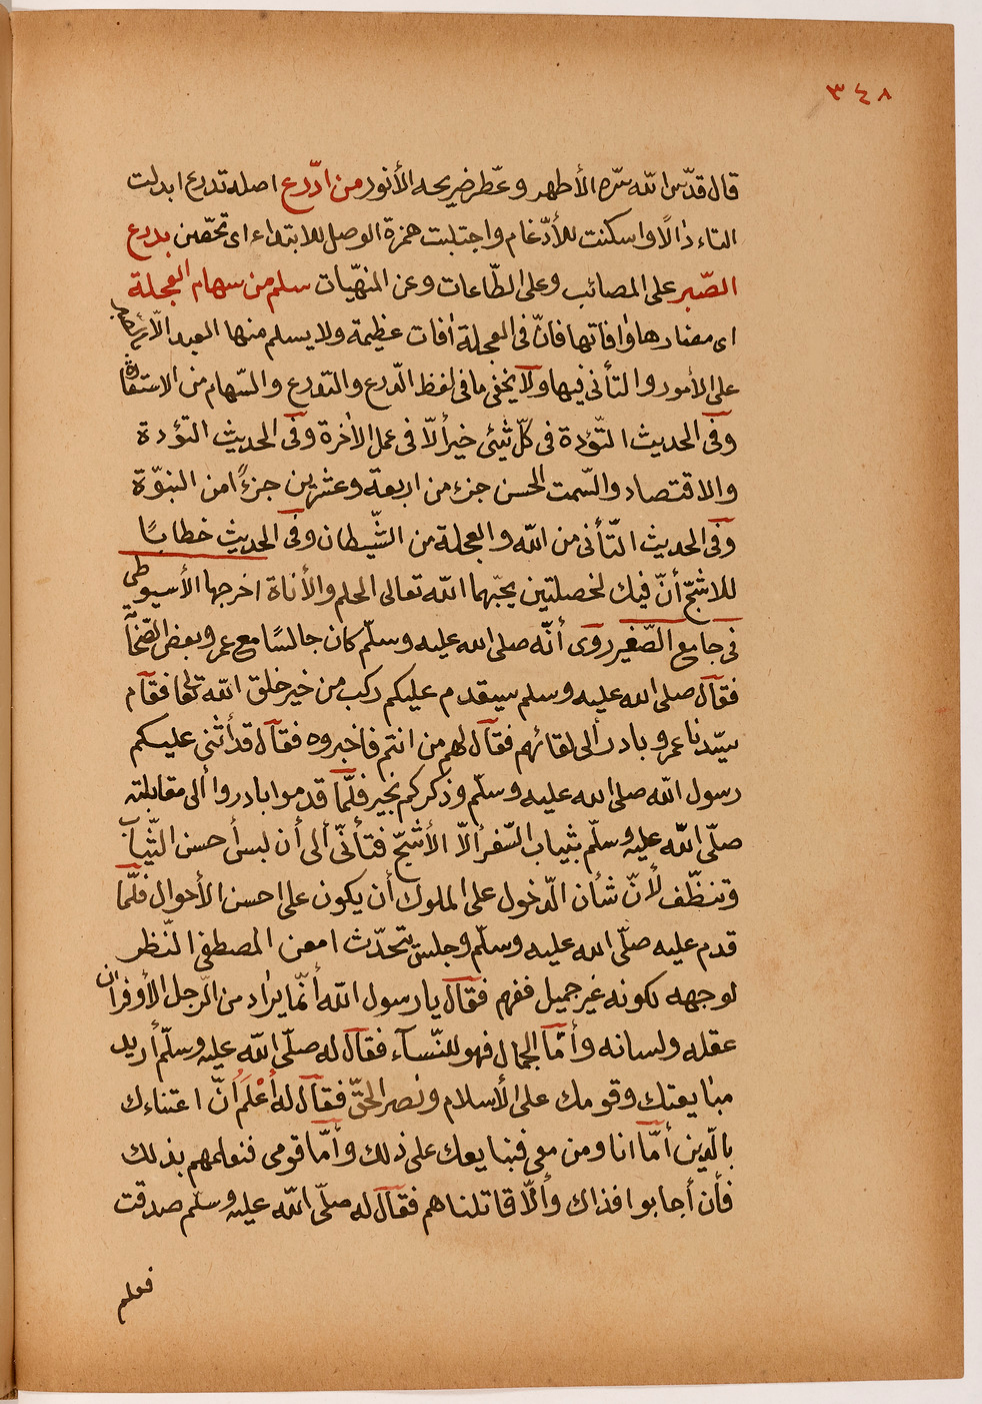 ٣٤٨
قال قدّس الله سرّه الأطهر وعطّر ضريحه الأنور من ادّرع اصله تدرع ابدلت
التاء دالًا واسكنت للأدّغام واجتلبت همزة الوصل للابتداء اى تحصّن بدرع
الصّبر على المصائب وعلى الطّاعات وعن المنهيّات سلم من سهام العجلة
اى مضارها واٰفاتها فانّ فى العجلة اٰفات عظيمة ولا يسلم منها العبد الّا
على الأمور والتأنى فيها ولا يخفى ما فى لفظ الدّرع والتورع والسّهام من الاستعارة
وفى الحديث التّؤدة فى كلّ شيئى خير ألّا فى عمل الاٰخرة وفى الحديث التؤدة
والاقتصاد والسّمت الحسن جزء من اربعة وعشرين جزءًا من النبوّة
وفى الحديث التّأنى من الله والعجلة من الشّيطان وفى الحديث خطابًا
للاشجّ أنّ فيك لخصلتين يحبّهما الله تعالى الحلم والأناة اخرجها الأسيوطى
فى جامع الصّغير روى أنّه صلى الله عليه وسلّم كان جالسًا مع عمر وبعض الصّحاٰبة
فقال صلى الله عليه وسلم سيقدم عليكم ركب من خير خلق الله تعالى فقام
سيّدنا عمر وبادر ألى لقائهم فقال لهم من انتم فاخبروه فقال قد أثنى عليكم
رسول الله صلى الله عليه وسلّم وذكركم بخير فلمّا قدموا بادروا ألى مقابلته
صلّى الله عليه وسلّم بثياب السّفر ألّا الأشجّ فتأنّى ألى أن لبس أحسن الثّياب
وتنظّف لأنّ شأن الدّخول على الملوك أن يكون على احسن الأحوال فلمّا
قدم عليه صلّى الله عليه وسلّم وجلس يتحدّث امعن المصطفى النّظر
لوجهه لكونه غير جميل ففهم فقال يا رسول الله أنّما يراد من الرّجل الأوفران
عقله ولسانه وأمّا الجمال فهو للنّسآء فقال له صلّى الله عليه وسلّم أريد
مبايعتك وقومك على الأسلام ونصر الحقّ فقال له أعْلَمُ أنّ اعتناءك
بالدّين أمّا انا ومن معى فنبايعك على ذلك وأمّا قومى فنعلمهم بذلك
فأن أجابوا فذاك وألّا قاتلناهم فقال له صلّى الله عليه وسلّم صدقت
فعلم